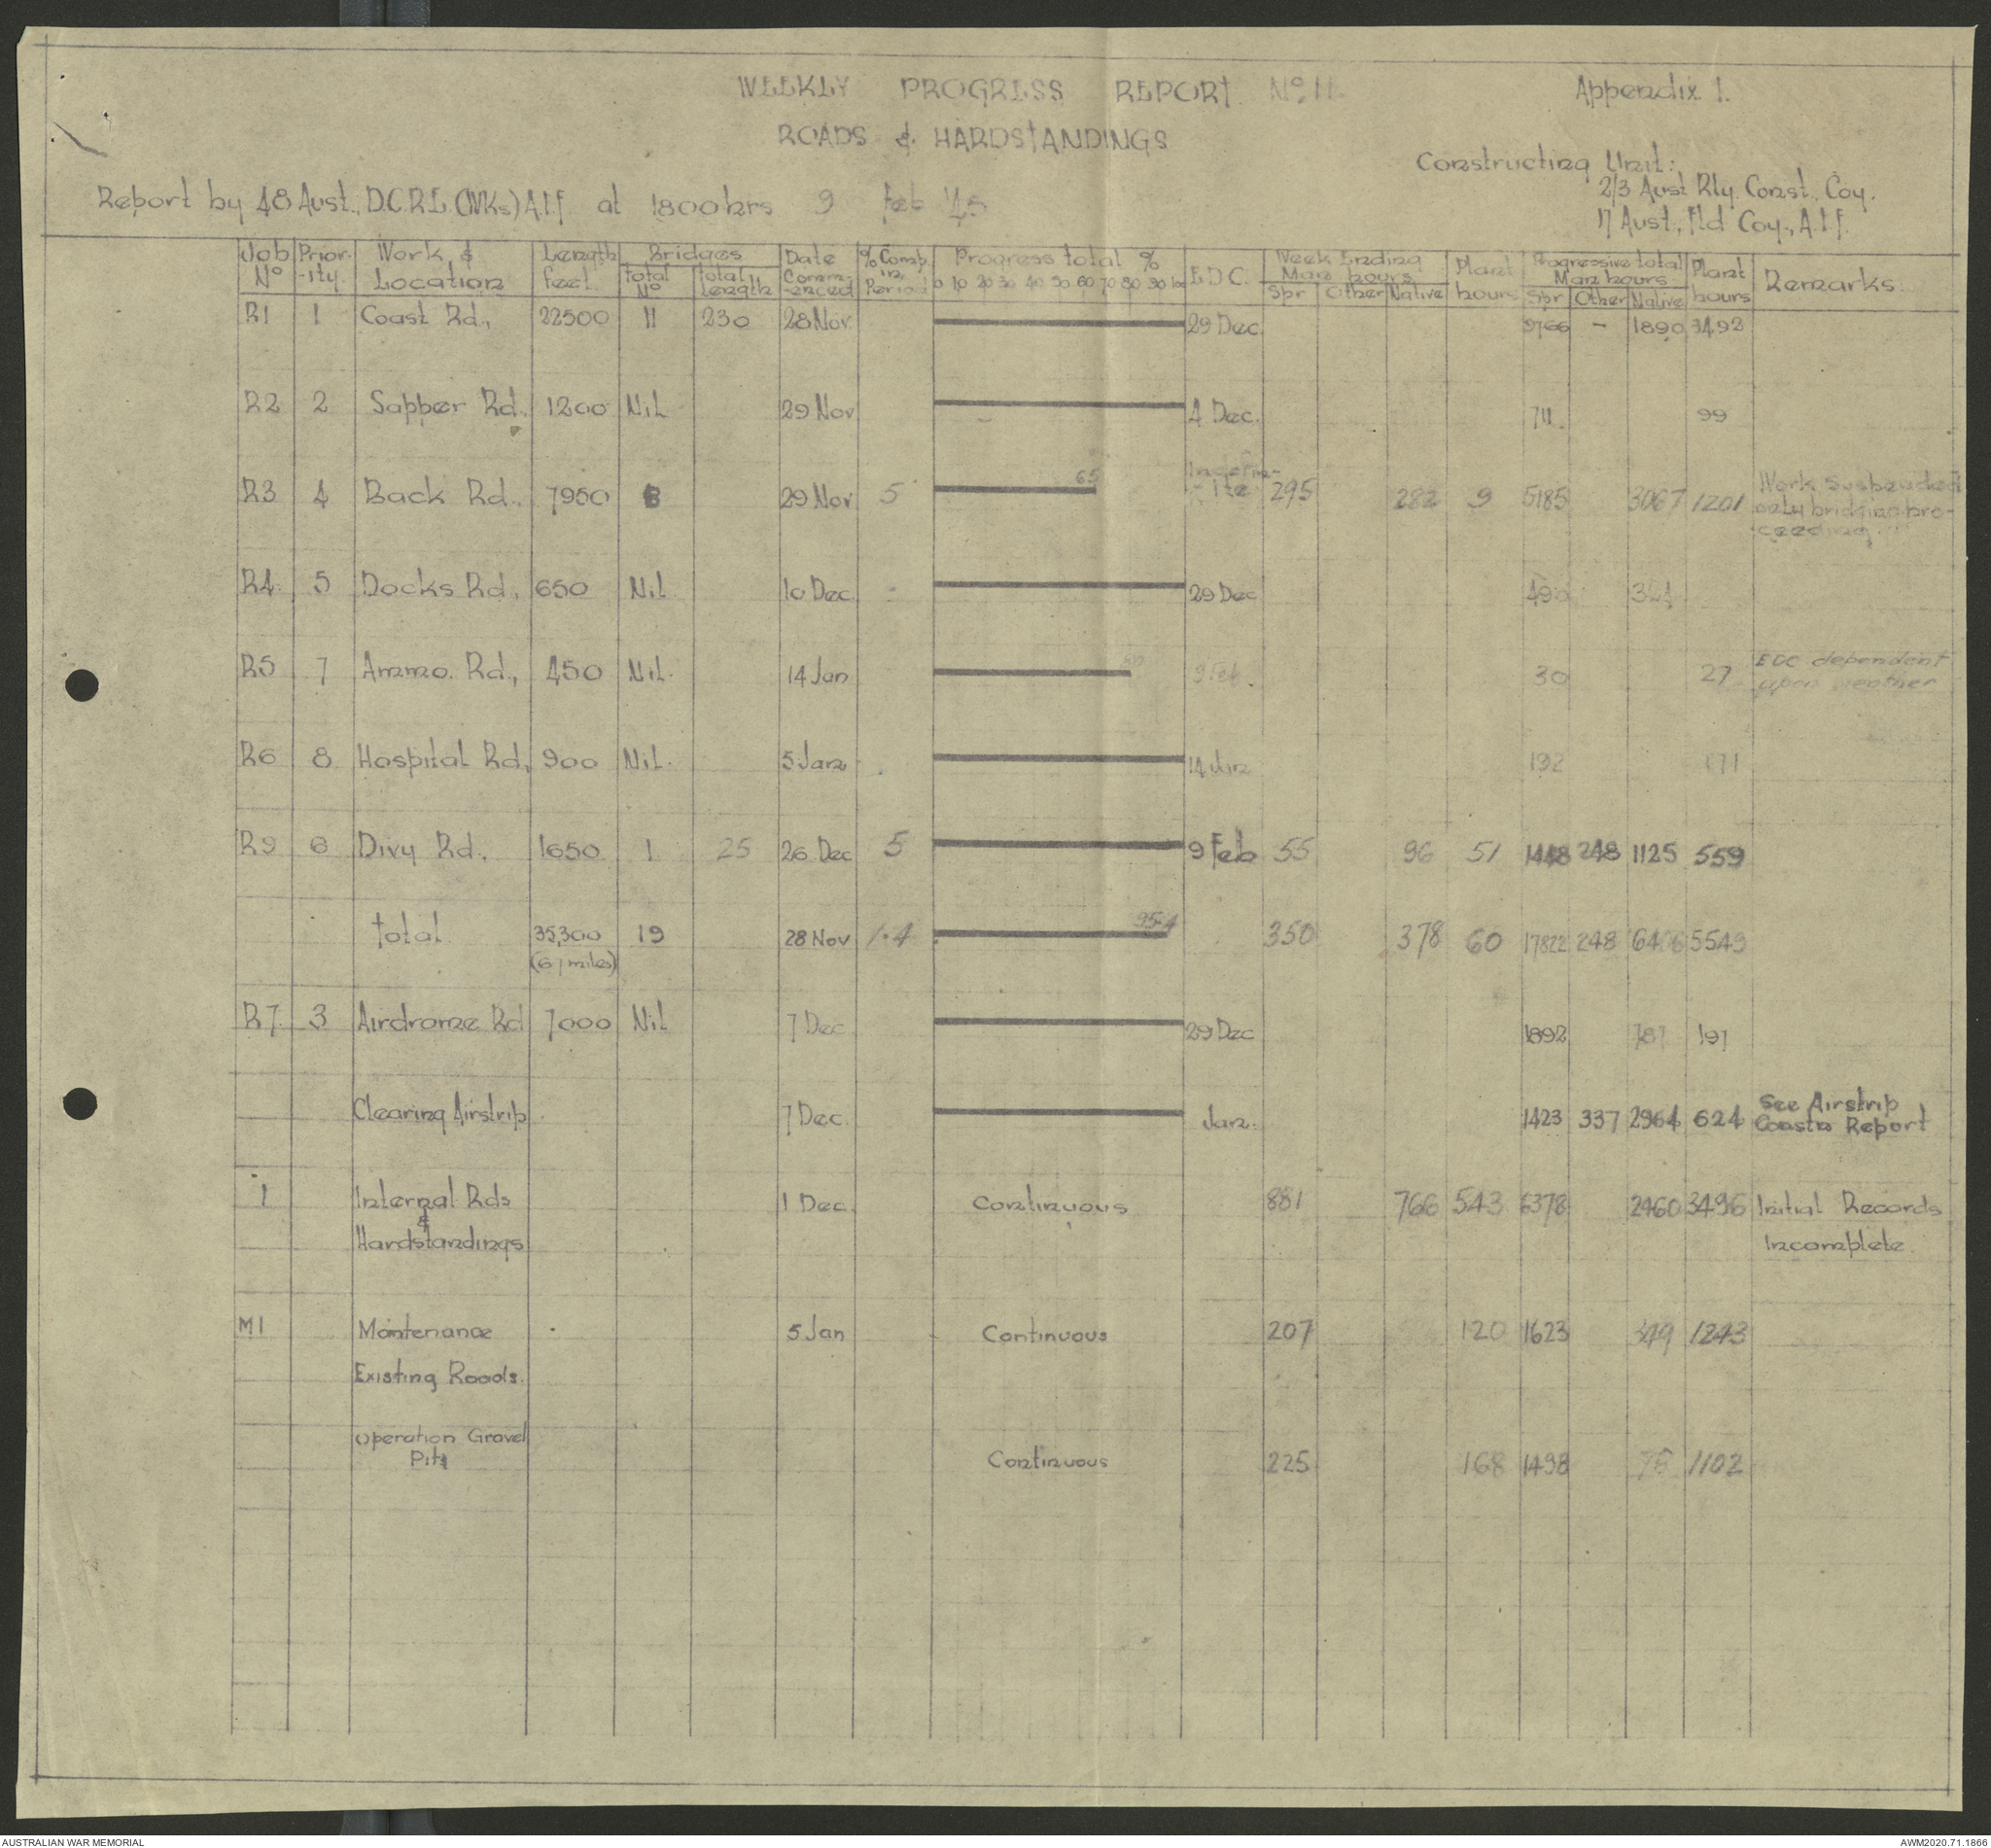 WEEKLY PROGRESS REPORT No 11.
Appendix 1.
ROADS & HARDSTANDINGS
Constructing Unit:
2/3 Aust Rly. Const., Coy.
17 Aust., Fld Coy., A.I.F.
Report by 48 Aust., D.C.R.E. (WKs) A.I.F. at 1800 hrs 9 Feb '45
Job No Prior-ity. Work & Location Length feet Bridges Total No Total Length Date Comm-enced % Comp. in Period Progress total % 0 10 20 30 40 50 60 70 80 90 100 E.D.C. Week Ending Man hours Spr Other Native Plant hours Progressive total Man hours Spr Other Native Plant hours Remarks
R1 1 Coast Rd., 22500 11 230 28 Nov. 29 Dec. 9766 - 1890 3492
R2 2 Sapper Rd. 1200 Nil 29 Nov 4 Dec. 711. 99
R3 4 Back Rd., 7950 29 Nov 5 65 Indefin-ite 295 282 9 5185 3067 1201 Work suspended only bridging pro-ceeding.
R4 5 Docks Rd., 650 Nil 10 Dec. 29 Dec
R5 7 Ammo. Rd., 450 Nil. 14 Jan 9 Feb. 30 27 EDC dependent upon weather
R6 8 Hospital Rd., 900 Nil. 5 Jan 14 Jan 192 171
R9 6 Divy Rd., 1650 1 25 26 Dec 5 9 Feb 55 96 51 1448 248 1125 559
Total 35,300 19 28 Nov 1.4 95.4 350 378 60 17822 248 5549
(6.7 miles)
R7. 3 Airdrome Rd 7000 Nil 7 Dec. 29 Dec 1892 787 197
Clearing Airstrip 7 Dec. Jan. 1423 337 2964 624 See Airstrip
Constn Report
1 Internal Rds 1 Dec. Continuous 881 766 543 6378 2460 3496 Initial Records
&
Hardstandings Incomplete.
M1 Maintenance 5 Jan Continuous 207 120 1623 349 1243
Existing Roads.
Operation Gravel
Pits Continuous 225 168 1498 78 1102
AUSTRALIAN WAR MEMORIAL
AWM2020.71.1866